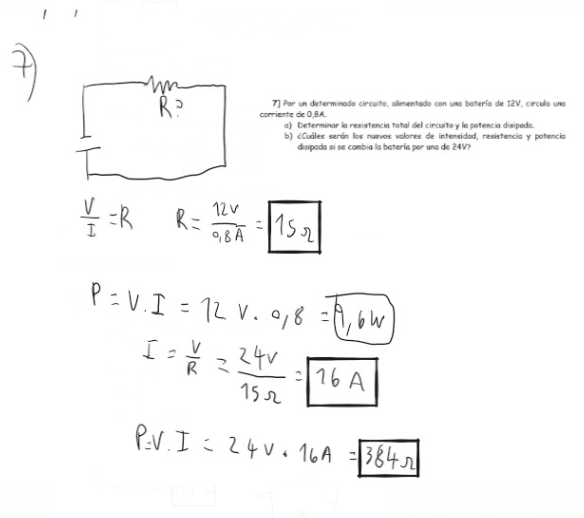 7)
R?
7) Por un determinado circuito, alimentado con una batería de 12V, circula una
corriente de 0,8A.
a) Determinar la resistencia total del circuito y la potencia disipada.
b) ¿Cuáles serán los nuevos valores de intensidad, resistencia y potencia
disipada si se cambia la batería por una de 24V?
V/I = R R = 12V/0,8A = 15Ω
P = V.I = 12 V. 0,8 = 9,6W
I = V/R = 24V/15Ω = 16 A
P=V.I = 24V . 16A = 384Ω